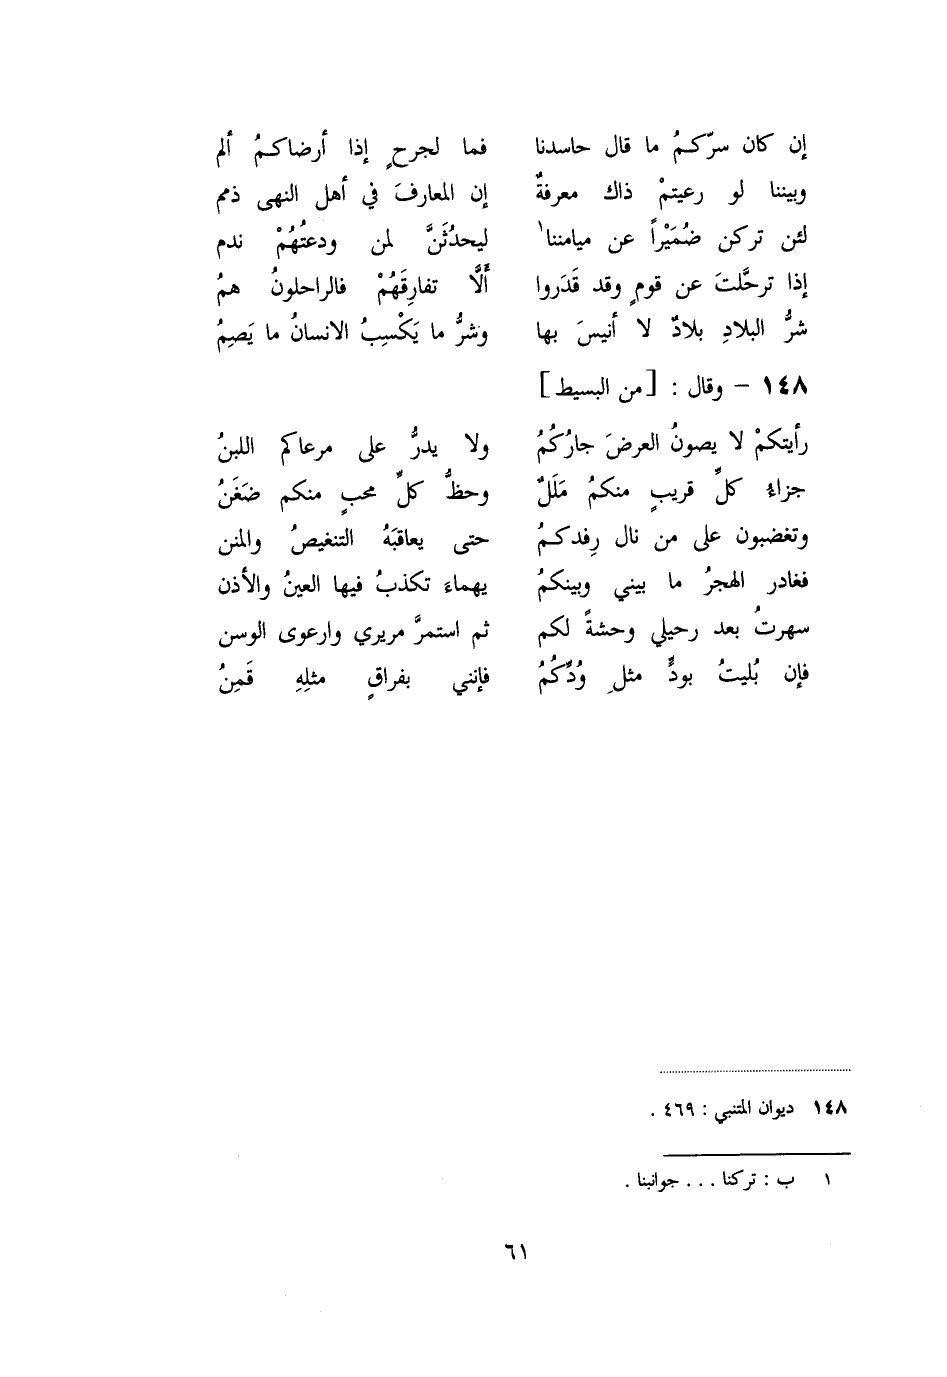 إن كان سرّكمُ ما قال حاسدنا فما لجرحٍ إذا أرضاكمُ ألم
وبيننا لو رعيتمْ ذاك معرفةٌ إن المعارفَ في أهل النهى ذمم
لئن تركن ضُمَيْراً عن ميامننا١ ليحدُثَنَّ لمن ودعتُهُمْ ندم
إذا ترحَّلتَ عن قومٍ وقد قَدَروا أَلَّا تفارِقَهُمْ فالراحلونُ همُ
شرُّ البلادِ بلادٌ لا أنيسَ بها وشرُّ ما يَكْسِبُ الانسانُ ما يَصِمُ
١٤٨ – وقال : [من البسيط]
رأيتكمْ لا يصونُ العرضَ جارُكُمُ ولا يدرُّ على مرعاكم اللبنُ
جزاءُ كلِّ قريبٍ منكمُ مَلَلٌ وحظُّ كلِّ محبٍ منكم ضَغَنُ
وتغضبون على من نال رِفدكمُ حتى يعاقبَهُ التنغيصُ والمنن
فغادر الهجرُ ما بيني وبينكمُ يهماءَ تكذبُ فيها العينُ والأذن
سهرتُ بعد رحيلي وحشةً لكم ثم استمرَّ مريري وارعوى الوسن
فإن بُليتُ بودٍّ مثلِ وُدِّكُمُ فإنني بفراقٍ مثلِهِ قَمِنُ
١٤٨ ديوان المتنبي : ٤٦٩ .
١ ب : تركنا . . . جوانبنا .
٦١